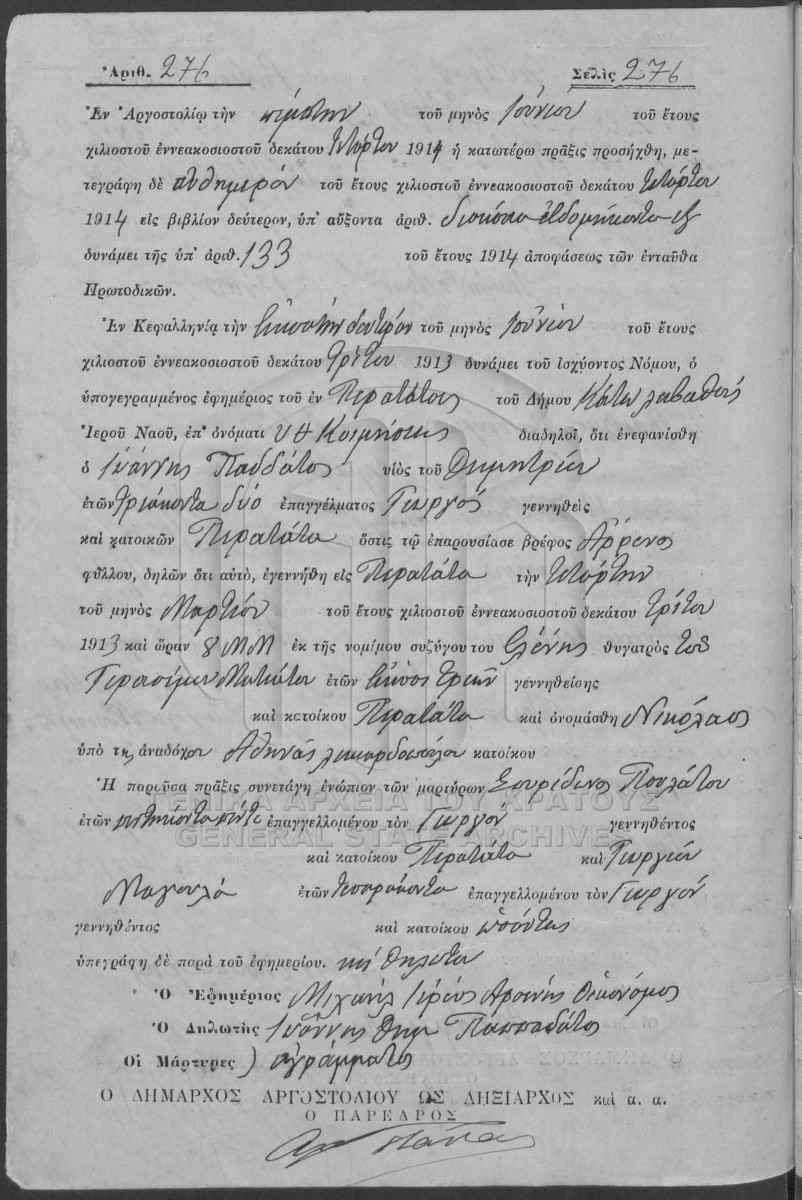 Ἀριθ. 276 Σελὶς 276
Ἐν Ἀργοστολίῳ τὴν πέμπτην τοῦ μηνὸς Ἰουνίου τοῦ ἔτους
χιλιοστοῦ ἐννεακοσιοστοῦ δεκάτου τετάρτου 1914 ἡ κατωτέρω πρᾶξις προσήχθη, με-
τεγράφη δὲ αὐθημερόν τοῦ ἔτους χιλιοστοῦ ἐννεακοσιοστοῦ δεκάτου τετάρτου
1914 εἰς βιβλίον δεύτερον, ὑπ' αὔξοντα ἀριθ. διακόσια ἑβδομήκοντα ἕξ
δυνάμει τῆς ὑπ' ἀριθ. 133 τοῦ ἔτους 1914 ἀποφάσεως τῶν ἐνταῦθα
Πρωτοδικῶν.
Ἐν Κεφαλληνίᾳ τὴν εἰκοστὴν δευτέραν τοῦ μηνὸς Ἰουνίου τοῦ ἔτους
χιλιοστοῦ ἐννεακοσιοστοῦ δεκάτου τρίτου 1913 δυνάμει τοῦ ἰσχύοντος Νόμου, ὁ
ὑπογεγραμμένος ἐφημέριος τοῦ ἐν Περατάτοις τοῦ Δήμου Κάτω Λειβαθοῦς
Ἱεροῦ Ναοῦ, ἐπ' ὀνόματι Κοιμήσεως διαδηλοῖ, ὅτι ἐνεφανίσθη
ὁ Ἰωάννης Παδδάτος υἱὸς τοῦ Δημητρίου
ἐτῶν τριάκοντα δύο ἐπαγγέλματος Γεωργός γεννηθεὶς
καὶ κατοικῶν Περατάτα ὅστις τῷ ἐπαρουσίασε βρέφος ἄρρενος
φύλλου, δηλῶν ὅτι αὐτὸ, ἐγεννήθη εἰς Περατάτα τὴν τετάρτην
τοῦ μηνὸς Μαρτίου τοῦ ἔτους χιλιοστοῦ ἐννεακοσιοστοῦ δεκάτου τρίτου
1913 καὶ ὥραν 8 ΜΜ ἐκ τῆς νομίμου συζύγου του Ἑλένης θυγατρὸς τοῦ
Γερασίμου Ματιάτου ἐτῶν εἴκοσι τριῶν γεννηθείσης
καὶ κατοίκου Περατάτα καὶ ὀνομάσθη Νικόλαος
ὑπὸ της ἀναδόχου Ἀθηνᾶς Λικαρδοπούλου κατοίκου
Ἡ παροῦσα πρᾶξις συνετάγη ἐνώπιον τῶν μαρτύρων Σπυρίδωνος Πουλάτου
ἐτῶν πεντήκοντα πέντε ἐπαγγελλομένου τὸν Γεωργόν γεννηθέντος
καὶ κατοίκου Περατάτα καὶ Γεωργίου
Μαγουλά ἐτῶν τεσσαράκοντα ἐπαγγελλομένου τὸν Γεωργόν
γεννηθέντος καὶ κατοίκου
ὑπεγράφη δὲ παρὰ τοῦ ἐφημερίου.
Ὁ Ἐφημέριος Μιχαὴλ Ἱερεὺς Οἰκονόμος
Ὁ Δηλωτὴς Ἰωάννης Δημ Παππαδάτος
Οἱ Μάρτυρες ) ἀγράμματοι
Ὁ ΔΗΜΑΡΧΟΣ ΑΡΓΟΣΤΟΛΙΟΥ ΩΣ ΛΗΞΙΑΡΧΟΣ καὶ α. α.
Ο ΠΑΡΕΔΡΟΣ
ΓΕΝΙΚΑ ΑΡΧΕΙΑ ΤΟΥ ΚΡΑΤΟΥΣ
GENERAL STATE ARCHIVES